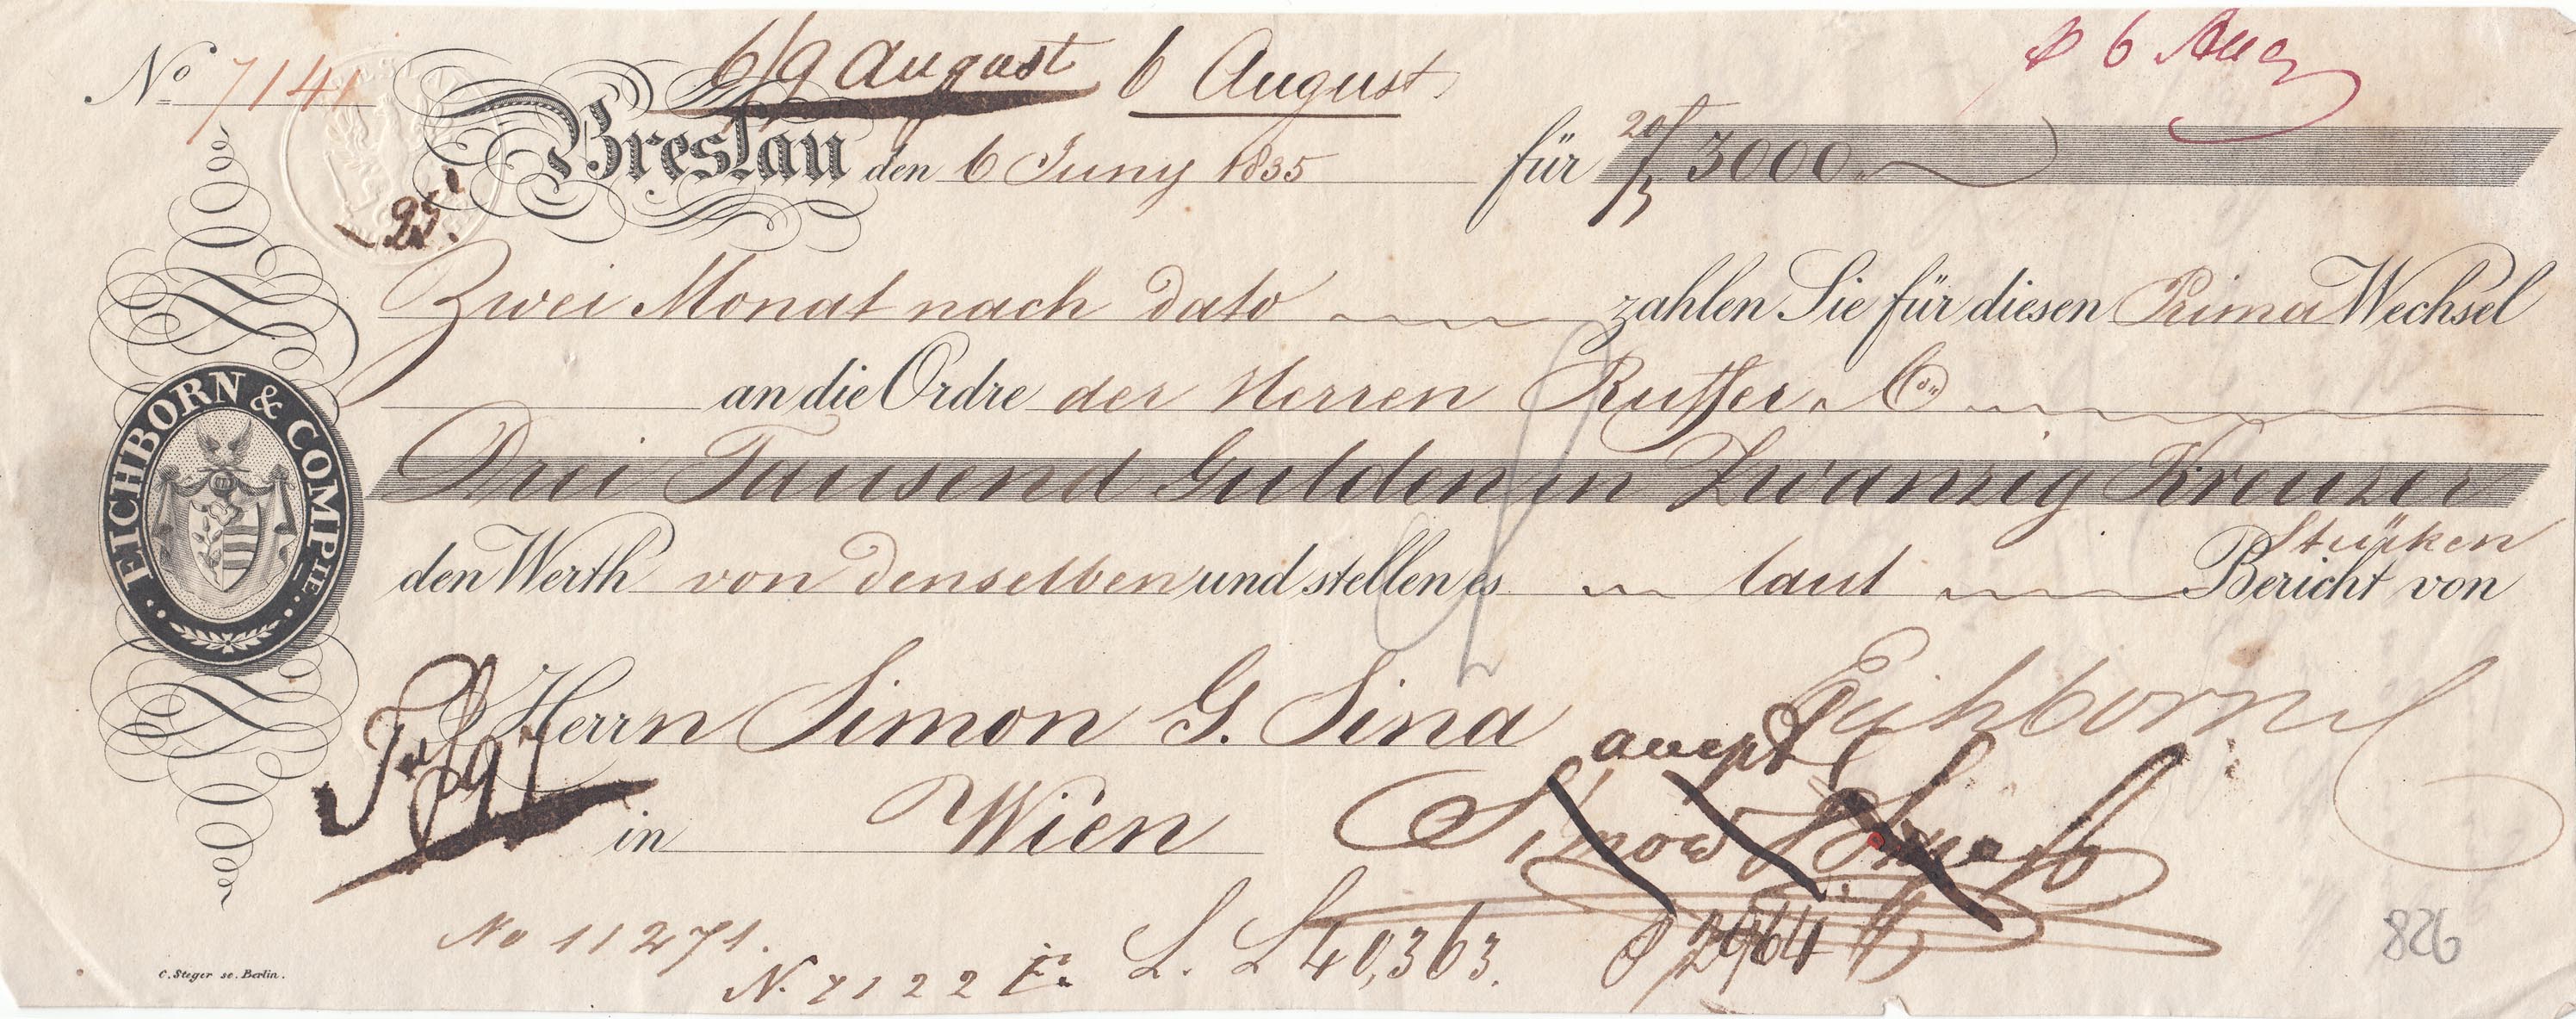 6/9 August 6 August
6 Aug
No 7141
Breslau den 6 Juny 1835 für 3000
25.
Zwei Monat nach dato zahlen Sie für diesen Prima Wechsel
an die Ordre der Herren Ruffer & Co
Drei Tausend Gulden in Zwanzig Kreuzer
Stücken
den Werth von denselben und stellen es laut Bericht von
EICHBORN & COMPIE
Herrn Simon G. Sina
Eichborn
accept
in Wien
Simon G. Sina
No 11271.
N. 7122
L. L 40,363.
2964
826
C. Steger sc. Berlin.